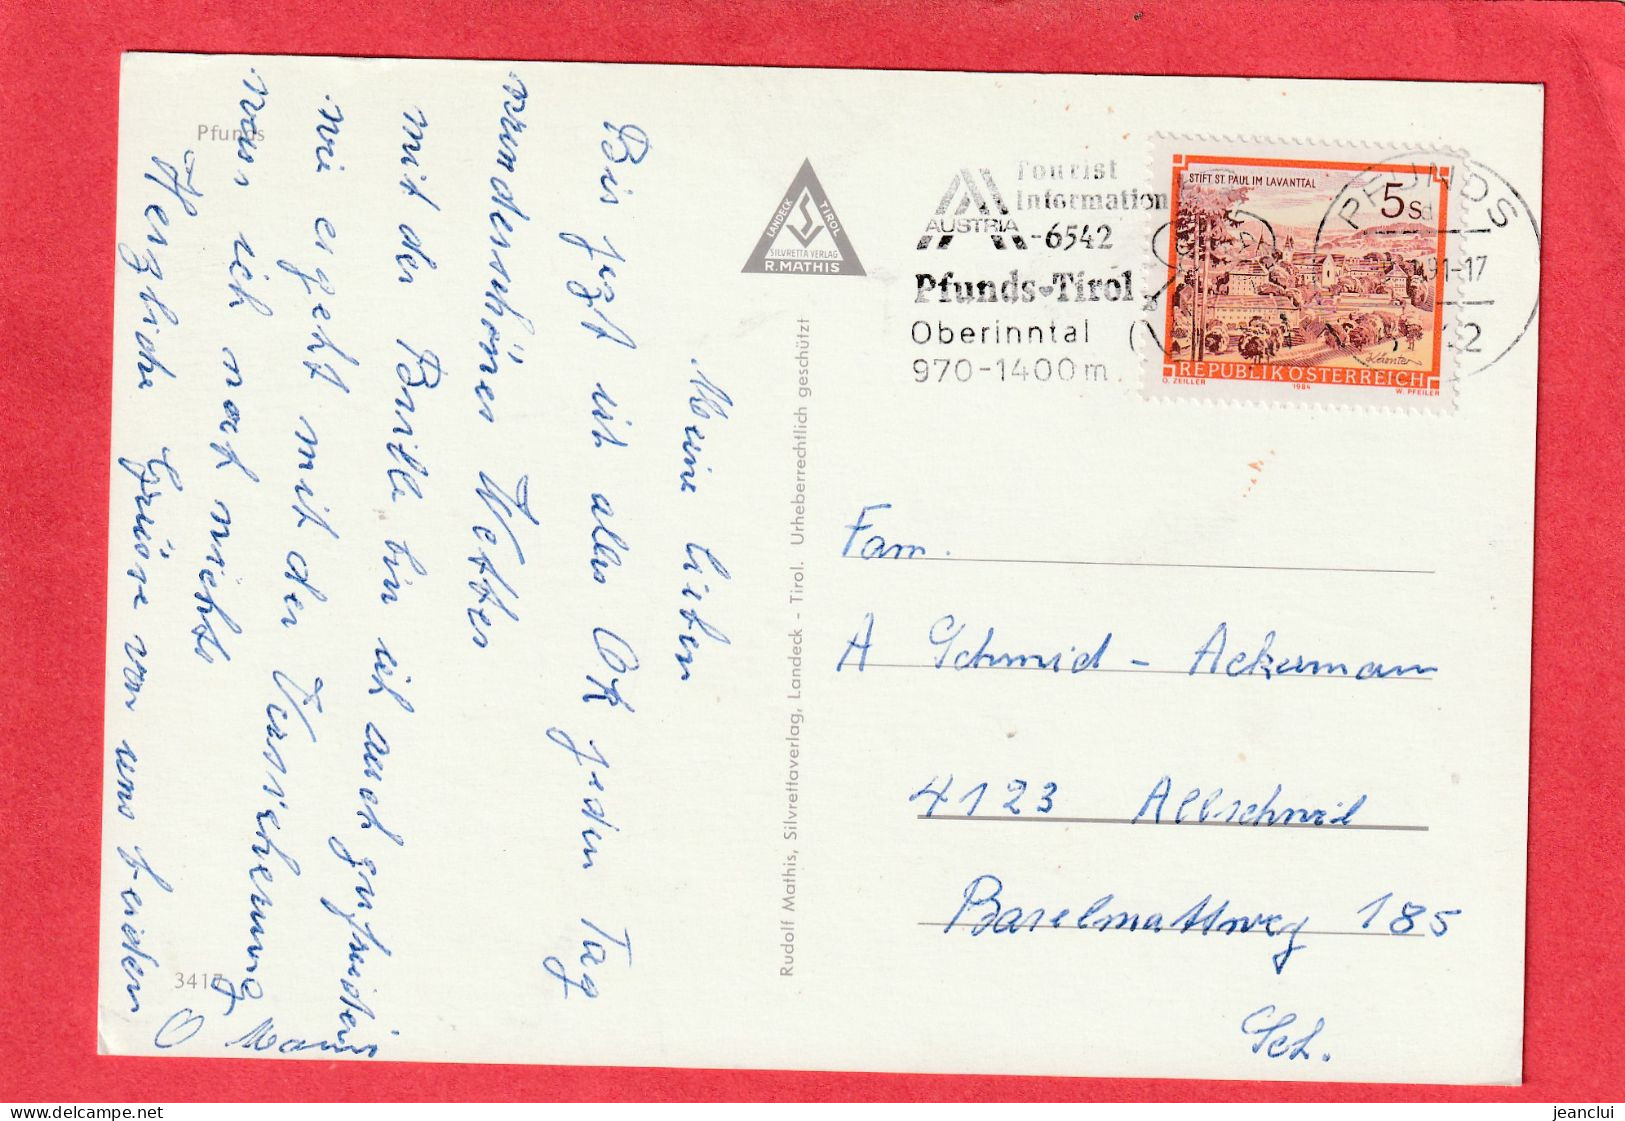 Pfunds
Meine Lieben
Bis jezt ist alles OK jeden Tag
wunderschönes Wetter
mit der Brille bin ich auch zufrieden
wie er geht mit der Versicherung
was ich noch nicht
Herzliche Grüsse von uns beiden
3417
LANDECK TIROL
SILVRETTA VERLAG
R. MATHIS
Rudolf Mathis, Silvrettaverlag, Landeck - Tirol. Urheberrechtlich geschützt
Tourist
Information
AUSTRIA
-6542
Pfunds-Tirol
Oberinntal
970-1400m
STIFT ST. PAUL IM LAVANTTAL
5 S
REPUBLIK ÖSTERREICH
O. ZEILLER 1984 W. PFEILER
PFUNDS
91-17
Fam.
A Schmid - Ackermann
4123 Allschwil
Baselmattweg 185
Sch.
www.delcampe.net
jeanclui